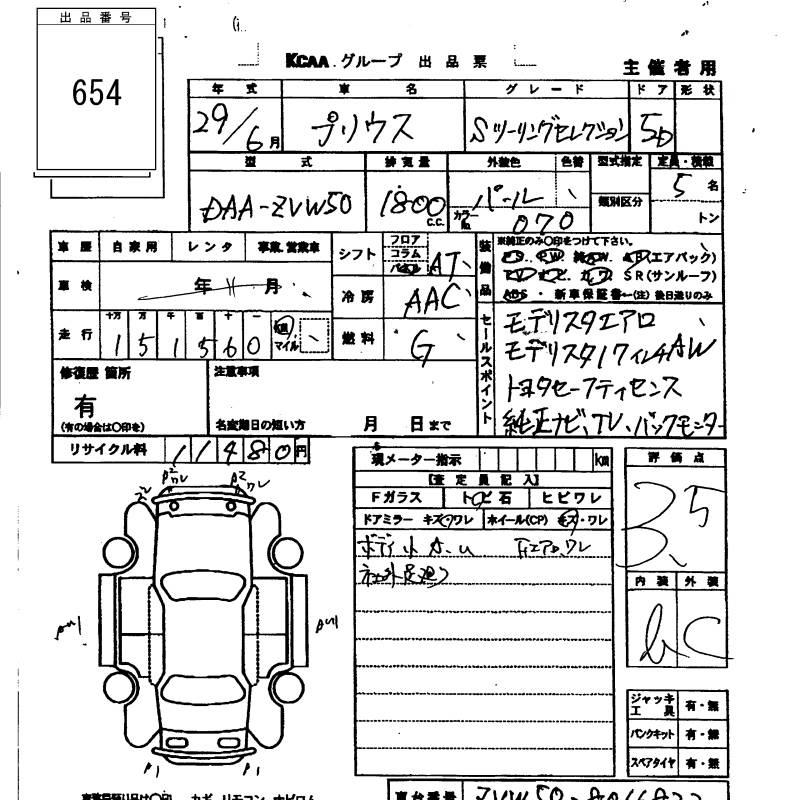 出品番号
654
KCAA グループ 出品票
主催者用
年式 車名 グレード ドア 形状
29/6月 プリウス Sツーリングセレクション 5D
型式 排気量 外装色 色替 型式指定 定員・積載
DAA-ZVW50 1800 C.C. パール 類別区分 5 名
カラーNo. 070 トン
車歴 自家用 レンタ 事業、営業車
シフト フロア コラム AT
装備品 ※純正のみ○印をつけて下さい。
PS. PW. AB(エアバック)
SR(サンルーフ)
ABS・新車保証書←(注)後日送りのみ
車検 年 月
冷房 AAC
走行 十万 万 千 百 十 一
151560 km マイル
燃料 G
セールスポイント
モデリスタエアロ
モデリスタ17インチAW
トヨタセーフティセンス
純正ナビ、TV、バックモニター
修復歴 箇所 注意事項
有
(有の場合は○印を) 名変期日の短い方 月 日まで
リサイクル料 11480円
現メーター指示 km
【査定員記入】
Fガラス トビ石 ヒビワレ
ドアミラー キズ・ワレ ホイール(CP) キズ・ワレ
ボディ小キズ、U Fエアロ、ワレ
評価点
3.5
内装 外装
b C
ジャッキ工具 有・無
パンクキット 有・無
スペアタイヤ 有・無
P1 P1
車台番号 ZVW50-